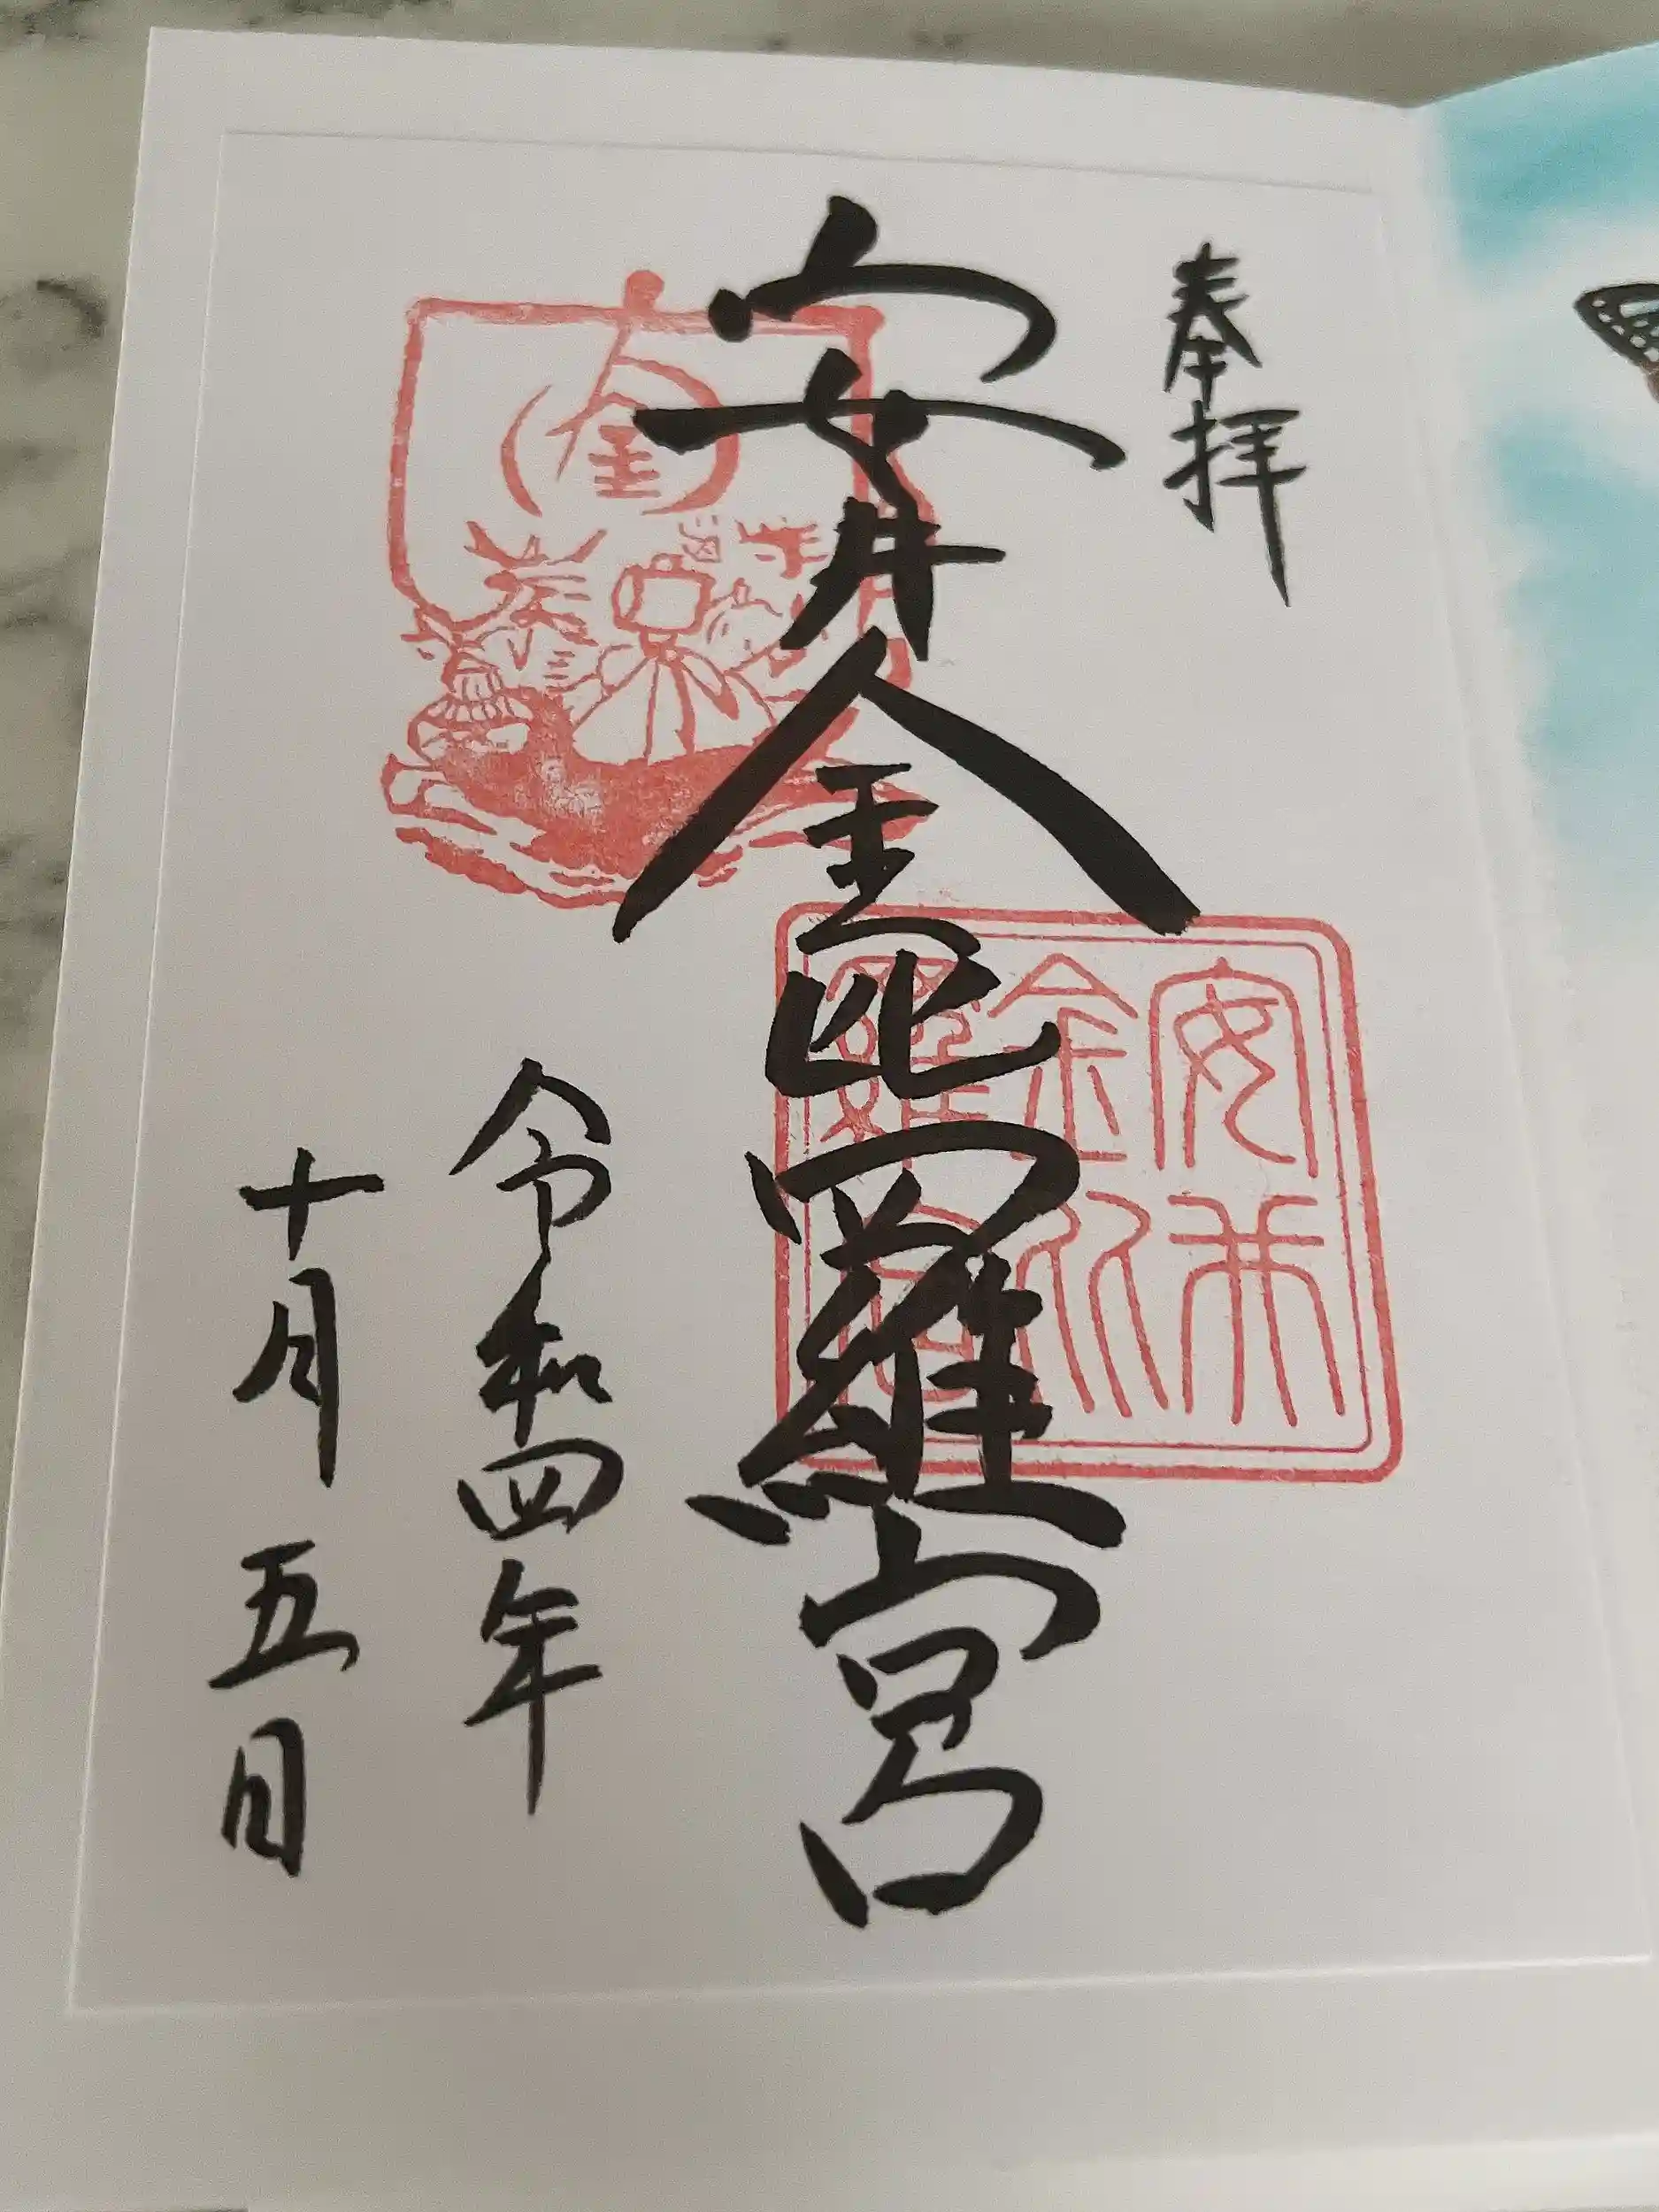 奉拝
安井金毘羅宮
令和四年
十月五日
金
安井
金比
羅宮